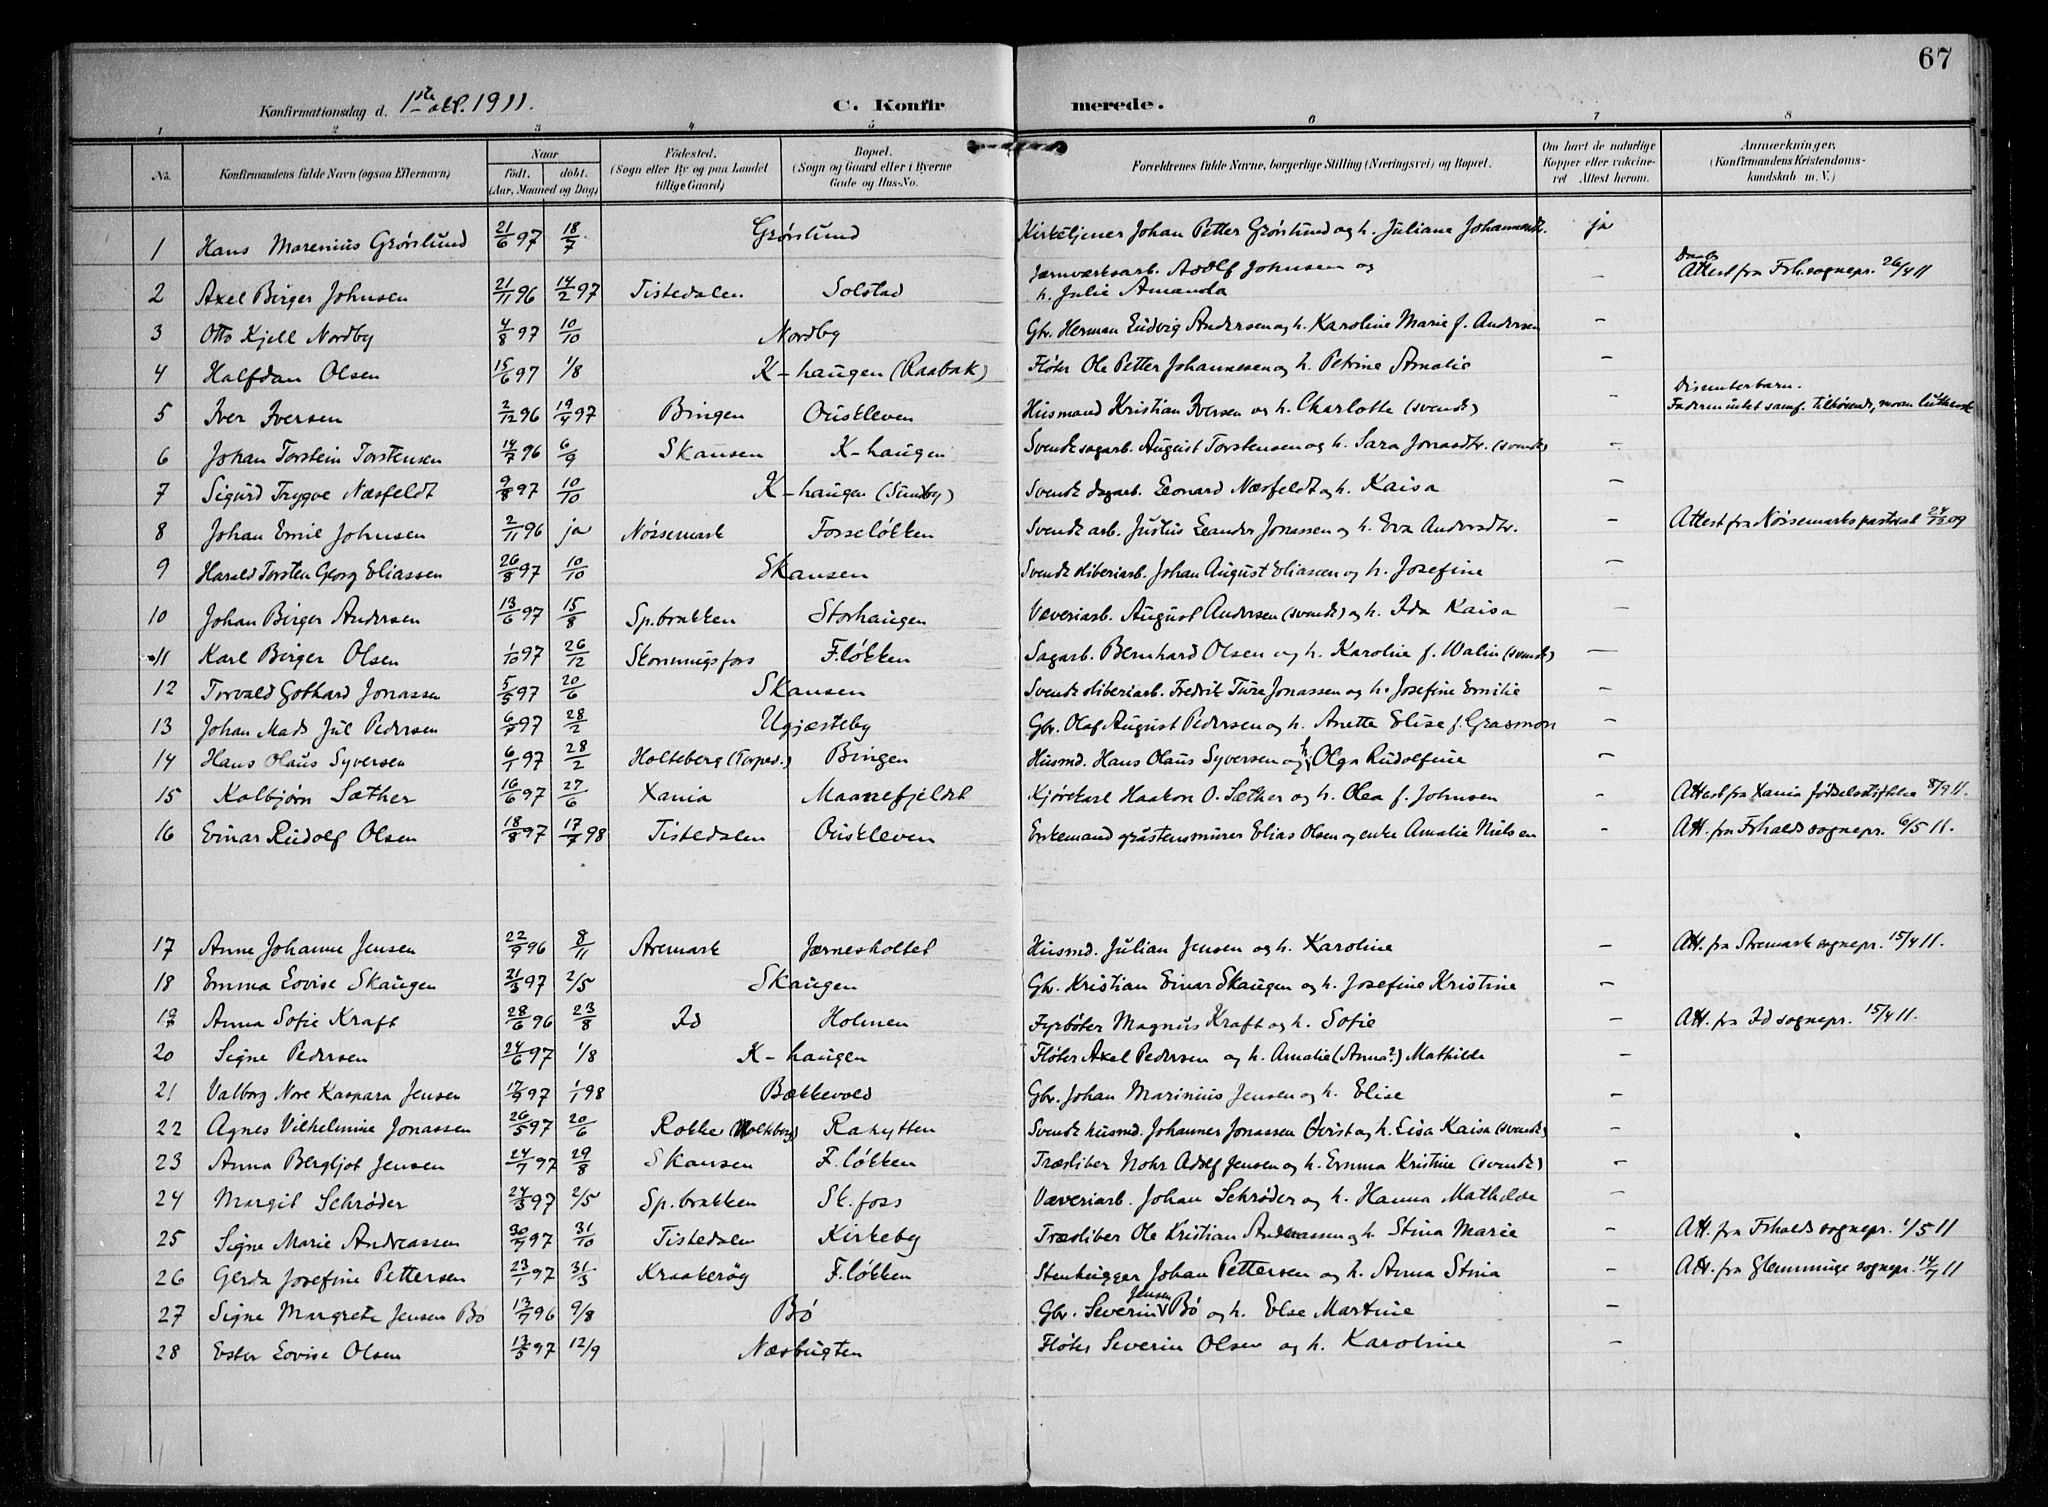 67
Konfirmationsdag d. 1ste okt. 1911. C. Konfirmerede.
1 2 3 4 5 6 7 8
No. Konfirmandens fulde Navn (ogsaa Efternavn) Naar Født. døbt. (Aar, Maaned og Dag) Fødested. (Sogn eller By og paa Landet tillige Gaard) Bopæl. (Sogn og Gaard eller i Byerne Gade og Hus-No. Forældrenes fulde Navne, borgerlige Stilling (Næringsvei) og Bopæl. Om havt de naturlige Kopper eller vakcineret Attest herom. Anmerkninger. (Konfirmandens Kristendomskundskab m. V.)
1 Hans Marenius Grørslund 21/6 97 18/7 Grørslund Kirketjener Johan Petter Grørslund og h. Juliane Johannesdtr. ja
2 Axel Birger Johnsen 21/11 96 14/2 97 Tistedalen Solstad Jernverksarb. Adolf Johnsen og h. Julie Amanda – Daabsattest fra Frh. sognepr. 26/4 11
3 Otto Kjell Nordby 4/8 97 10/10 Nordby Gbr. Herman Ludvig Andersen og h. Karoline Marie f. Andersen –
4 Halfdan Olsen 15/6 97 1/8 K-haugen (Raabak) Fløter Ole Petter Johannesen og h. Petrine Amalie –
5 Iver Iversen 2/12 96 19/4 97 Bingen Oustleven Husmand Kristian Iversen og h. Charlotte (svensk) – Disenterbarn. Faderen intet samf. tilhørende, moren luthersk
6 Johan Torstein Torstensen 14/7 96 6/9 Skansen K-haugen Svensk sagarb. August Torstensen og h. Sara Jonasdtr. (svensk) –
7 Sigurd Trygve Næsfeldt 9/8 97 10/10 K-haugen (Sundby) Svensk dagarb. Leonard Næsfeldt og h. Kaisa –
8 Johan Emil Johnsen 2/11 96 ja Nøssemark Forseløkken Svensk arb. Justus Leander Jonassen og h. Eva Andersdtr. – Attest fra Nøssemarks pastorat 09
9 Harald Torsten Georg Eliassen 26/8 97 10/10 Skansen Svensk sliberiarb. Johan August Eliassen og h. Josefine –
10 Johan Birger Andersen 13/6 97 15/8 Sp.brækken Storhaugen Væveriarb. August Andersen (svensk) og h. Ida Kaisa –
11 Karl Birger Olsen 1/10 97 26/12 Skonningsfors F.løkken Sagarb. Bernhard Olsen og h. Karoline f. Walin (svensk) –
12 Torvald Gothard Jonassen 5/5 97 20/6 Skansen Svensk sliberiarb. Fredrik Ture Jonassen og h. Josefine Emilie –
13 Johan Mads Jul Pedersen 97 28/2 Ugjæsteby Gbr. Olaf August Pedersen og h. Anette Elise f. Grasmon –
14 Hans Olaus Syversen 6/1 97 28/2 Holteberg (Torped.) Bingen Husmd. Hans Olaus Syversen og h. Olga Rudolfine –
15 Kolbjørn Sæther 16/6 97 27/6 Xania Maanefjeldet Kjørekarl Haakon O. Sæther og h. Olea f. Johnsen – Attest fra Xania fødselsstiftelse 8/9 11.
16 Einar Rudolf Olsen 18/8 97 17/7 98 Tistedalen Oustleven Enkemand gråstensmurer Elias Olsen og enke Amalie Nielsen – Att. fra Frhalds sognepr. 6/5 11.
17 Anne Johanne Jensen 22/9 96 8/11 Aremark Jærnesholtet Husmd. Julian Jensen og h. Karoline – Att. fra Aremark sognepr. 15/4 11.
18 Emma Lovise Skaugen 21/3 97 2/5 Skaugen Gbr. Kristian Einar Skaugen og h. Josefine Kristine –
19 Anna Sofie Kraft 28/6 96 23/8 Id Holmen Fyrbøter Magnus Kraft og h. Sofie – Att. fra Id sognepr. 15/4 11.
20 Signe Pedersen 24/6 97 1/8 K-haugen Fløter Axel Pedersen og h. Amalie (Anna?) Mathilde –
21 Valborg Nore Kaspara Jensen 97 1/1 98 Bækkevold Gbr. Johan Marinius Jensen og h. Elise –
22 Agnes Vilhelmine Jonassen 26/5 97 20/6 Rokke (Holteberg) Rakytten Svensk husmd. Johannes Jonassen Qvist og h. Lisa Kaisa (svensk) –
23 Anna Bergljot Jensen 24/7 97 29/8 Skansen F.løkken Træsliber Nohr Adolf Jensen og h. Emma Kristine (svensk) –
24 Margit Schrøder 24/3 97 2/5 Sp.brækken Sk.foss Væveriarb. Johan Schrøder og h. Hanna Mathilde –
25 Signe Marie Andreassen 30/9 97 31/10 Tistedalen Kirkeby Træsliber Ole Kristian Andreassen og h. Stina Marie – Att. fra Frhalds sognepr. 1/5 11
26 Gerda Josefine Pettersen 23/1 97 31/3 Kraakerøy F.løkken Stenhugger Johan Pettersen og h. Anna Stina – Att. fra Glemminge sognepr. 14/7 11
27 Signe Margrete Jensen Bø 13/7 96 9/8 Bø Gbr. Severin Jensen Bø og h. Else Martine –
28 Ester Lovise Olsen 13/5 97 12/9 Næsbugten Fløter Severin Olsen og h. Karoline –